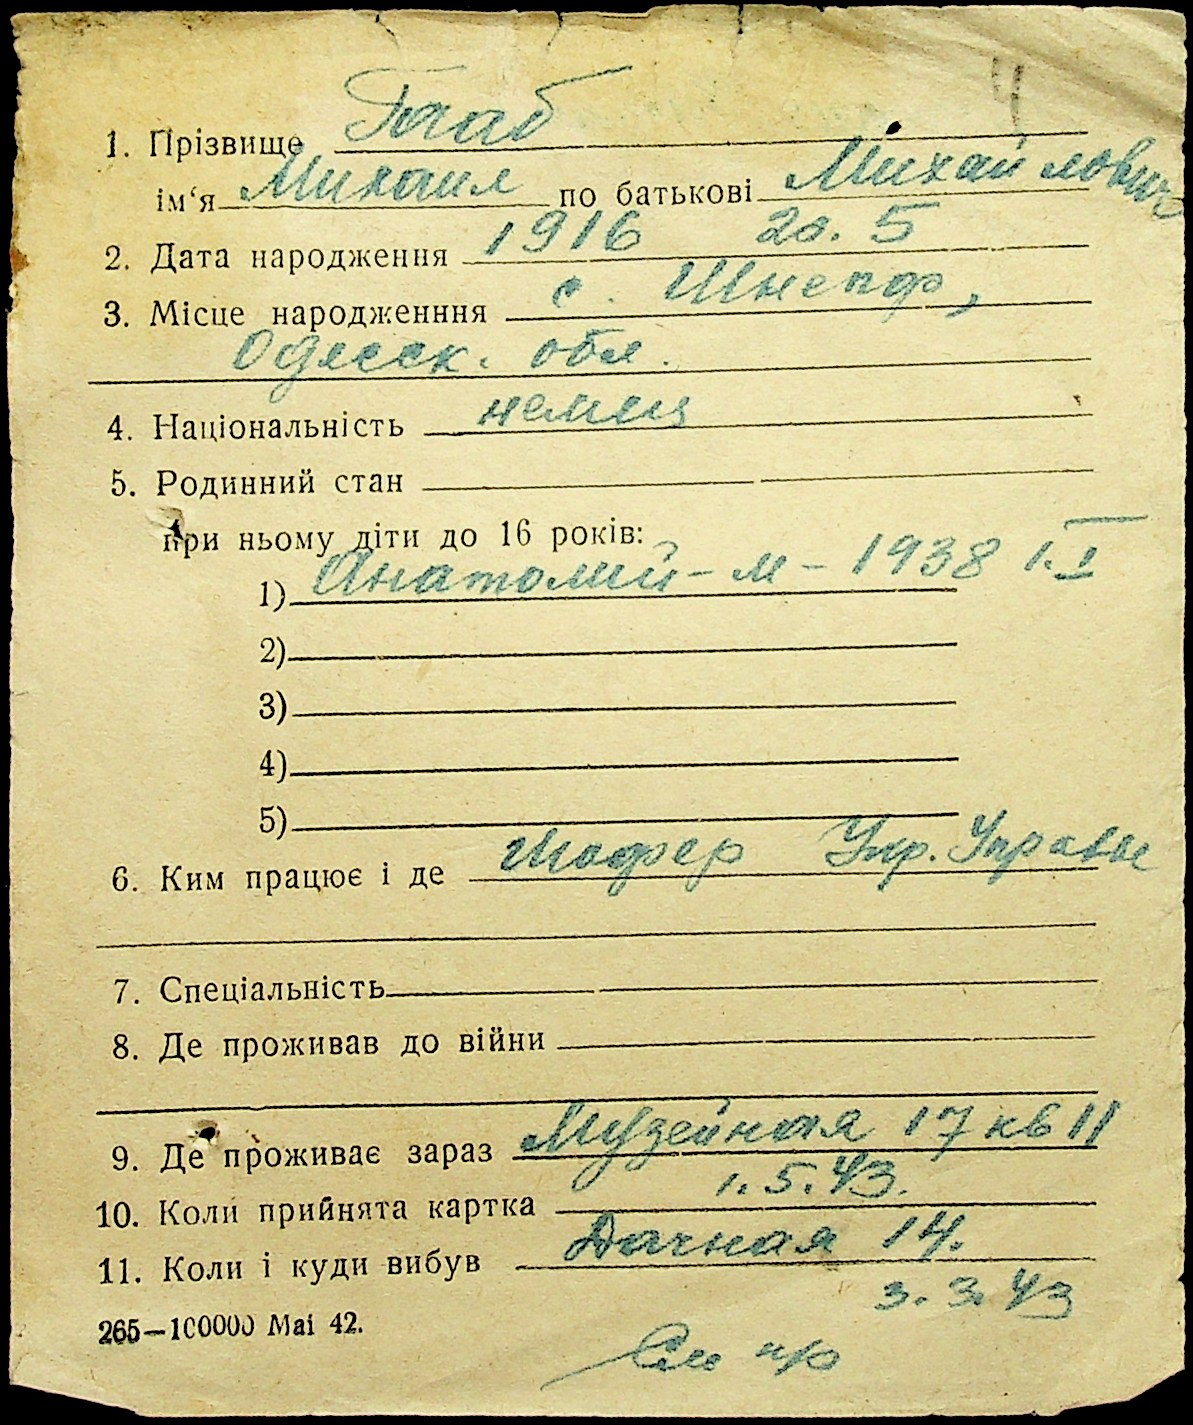 4
1. Прізвище Гааб
ім‘я Михаил по батькові Михайлович
2. Дата народження 1916 20. 5
3. Місце народженння с. Шнепф,
Одесск. обл.
4. Національність немец
5. Родинний стан
при ньому діти до 16 років:
1) Анатолий – м – 1938 1.I
2)
3)
4)
5)
6. Ким працює і де Шофер Укр. Управы
7. Спеціальність
8. Де проживав до війни
9. Де проживає зараз Музейная 17 кв 11
10. Коли прийнята картка 1. 5. 43.
11. Коли і куди вибув Дачная 14.
3. 3. 43
265—100000 Mai 42.